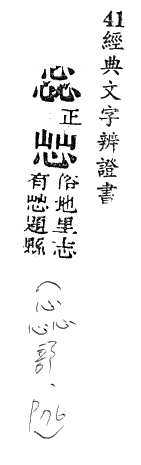 41 經典文字辨證書
惢 正
俗 地里志
有 題縣
(惢部、P76)